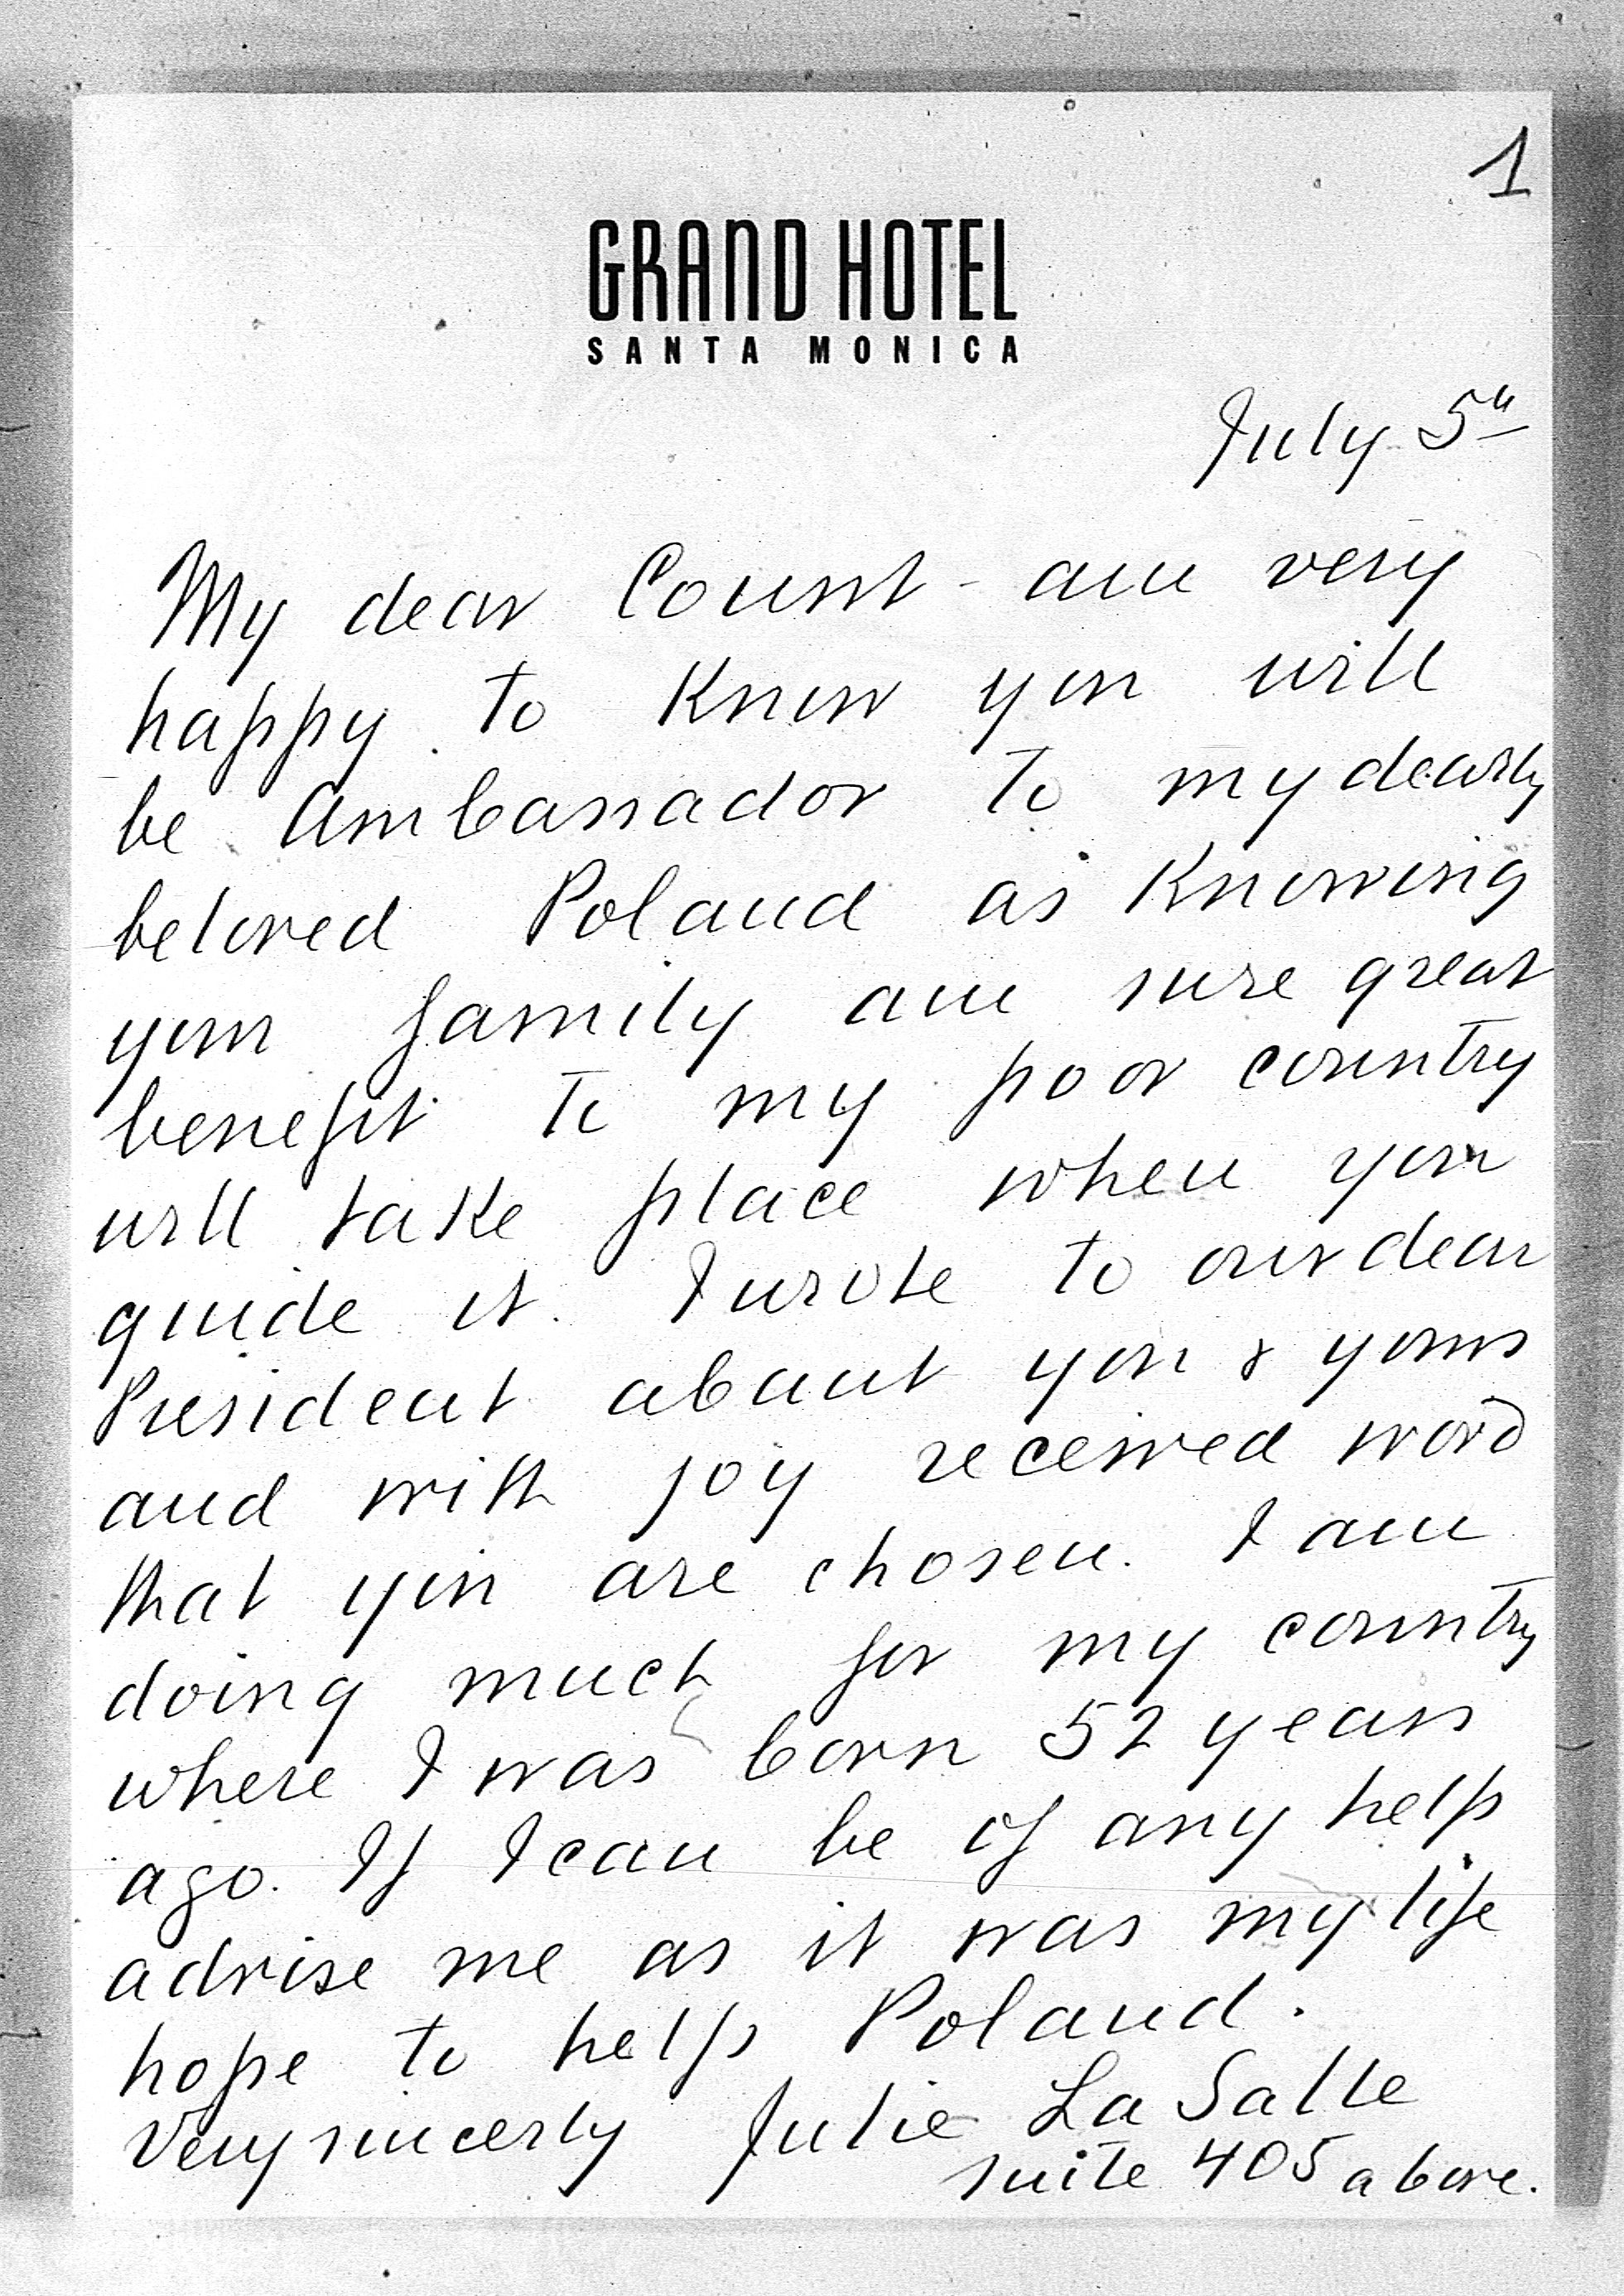 1
GRAND HOTEL
SANTA MONICA
July 5th
My dear Count - am very
happy to know you will
be Ambassador to my dearly
beloved Poland as knowing
your family am sure great
benefit to my poor country
will take place when you
guide it. I wrote to our dear
President about you & yours
and with joy received word
that you are chosen. I am
doing much for my country
where I was born 52 years
ago. If I can be of any help
advise me as it was my life
hope to help Poland.
Very sincerly Julie La Salle
suite 405 above.